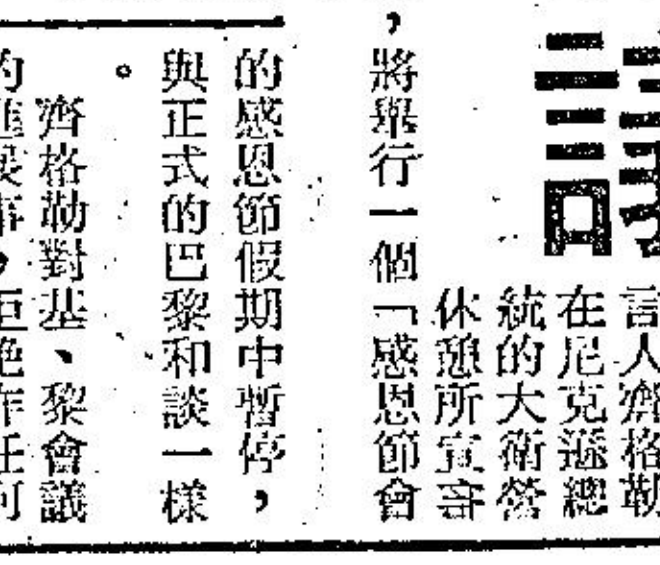 議
言人齊格勒
在尼克遜總
統的大衛營
休憩所宣
,將舉行一個「感恩節會
的感恩節假期中暫停,
與正式的巴黎和談一樣
。
齊格勒對基、黎會議
的進展事,拒絕作任何